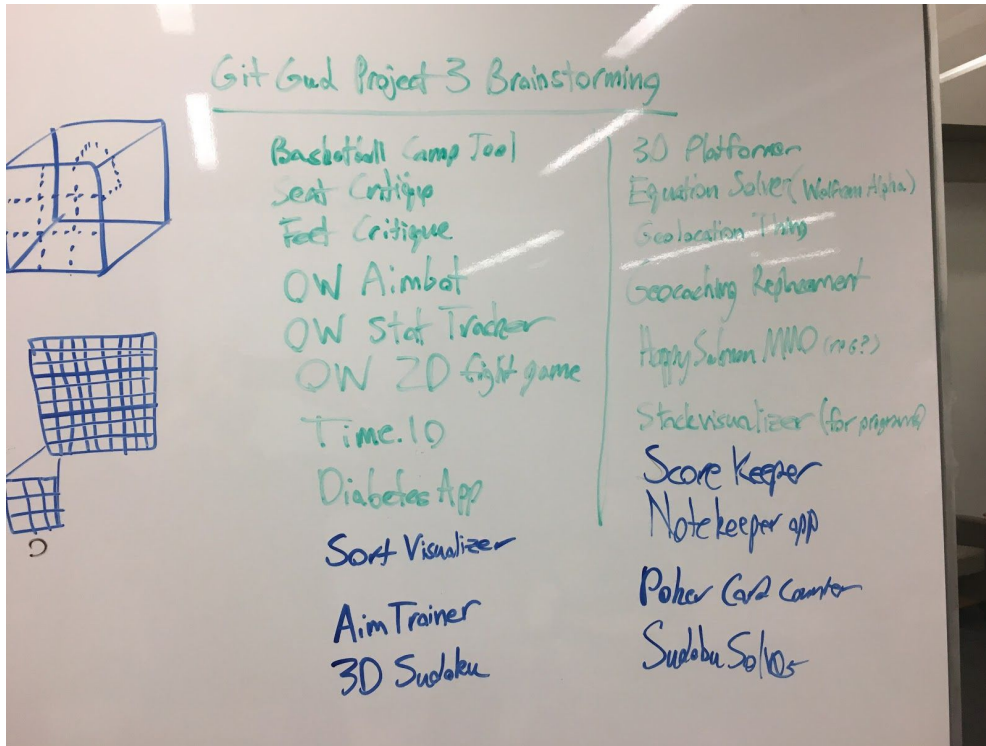 Git Gud Project 3 Brainstorming
Basketball Camp Tool
Seat Critique
Feet Critique
OW Aimbot
OW Stat Tracker
OW 2D fight game
Time.IO
Diabetes App
Sort Visualizer
Aim Trainer
3D Sudoku
3D Platformer
Equation Solver (Wolfram Alpha)
Geolocation Thing
Geocaching Replacement
Happy Salmon MMO
Stackvisualizer (for programs)
Score Keeper
Notekeeper app
Poker Card Counter
Sudoku Solver